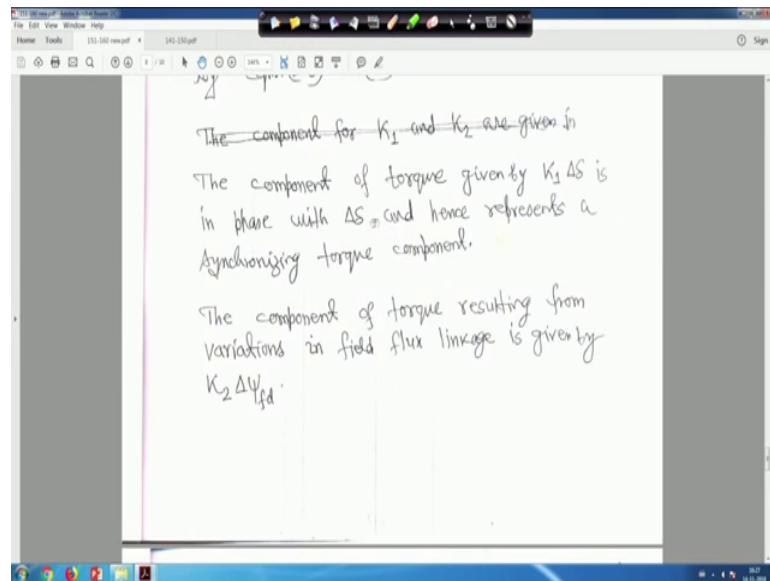 151-160 new.pdf - Adobe Acrobat Reader DC
File Edit View Window Help
Home Tools 151-160 new.pdf × 141-150.pdf Sign
The component for K₁ and K₂ are given in
The component of torque given by K₁ ΔS is
in phase with ΔS, and hence represents a
synchronizing torque component.
The component of torque resulting from
variations in field flux linkage is given by
K₂ Δψfd.